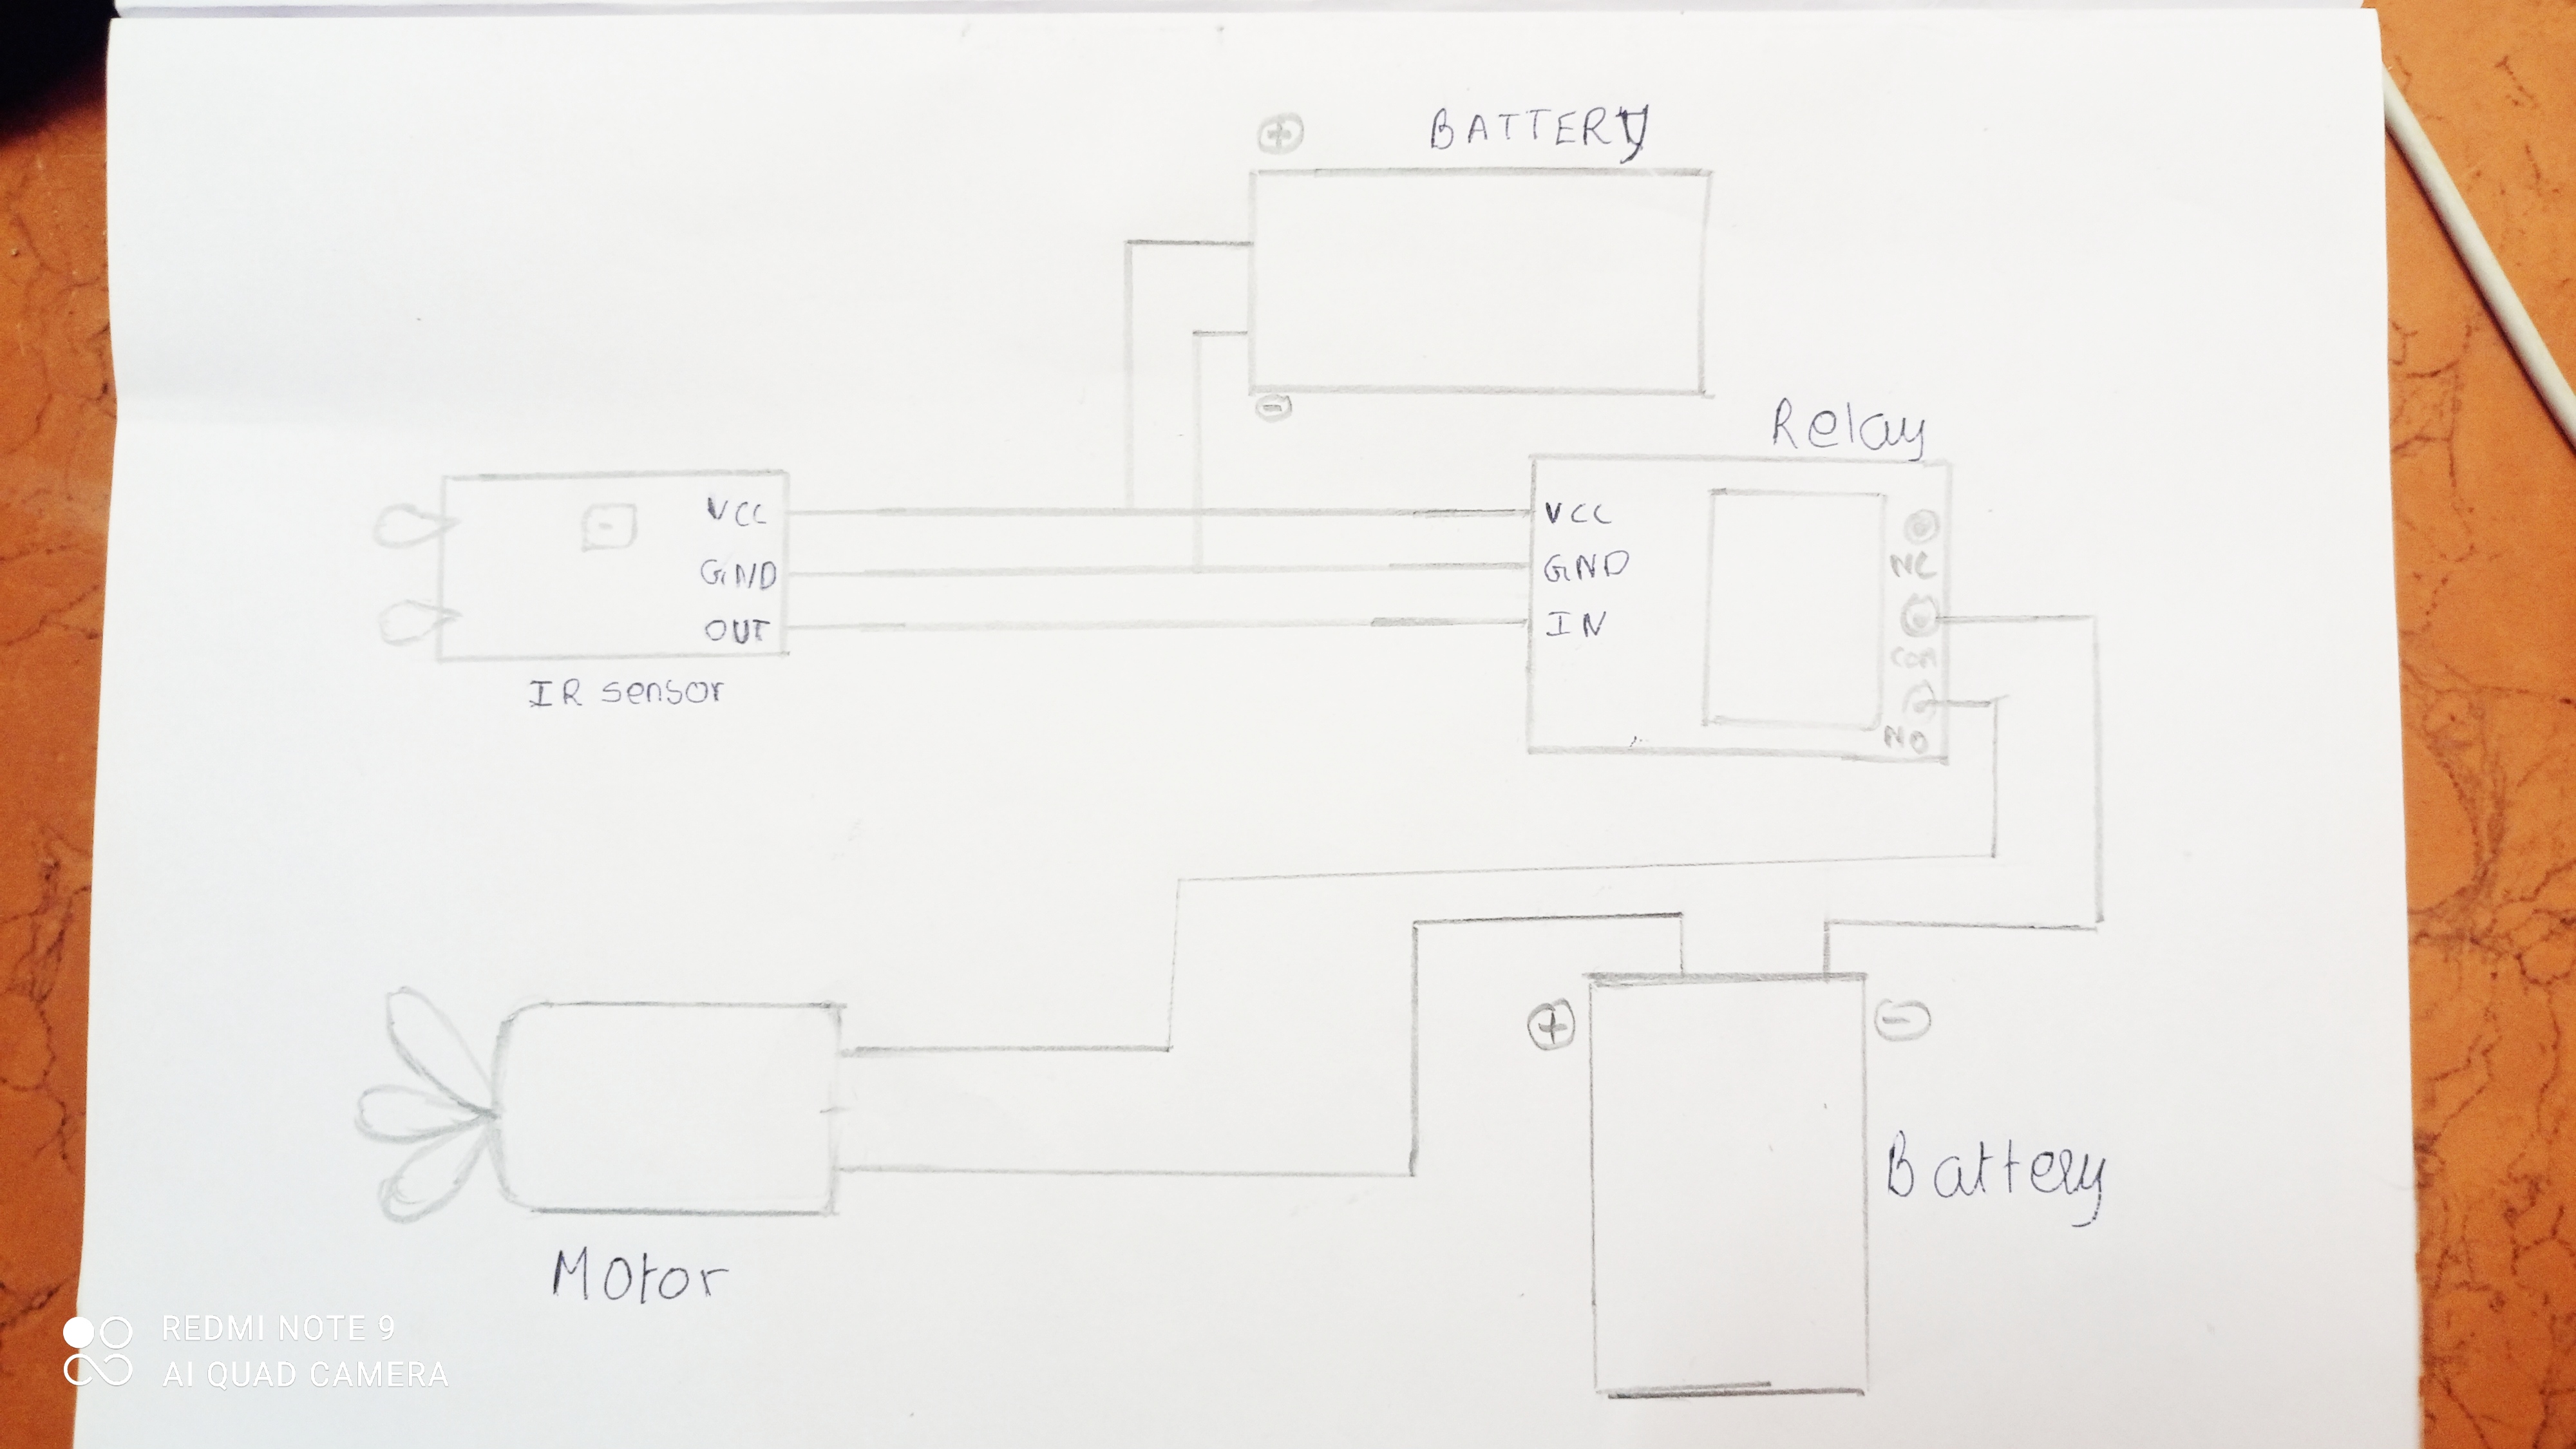 ⊕ BATTERY
⊖
Relay
VCC
GND
OUT
IR sensor
VCC
GND
IN
NC
COM
NO
Motor
⊕
⊖
Battery
REDMI NOTE 9
AI QUAD CAMERA